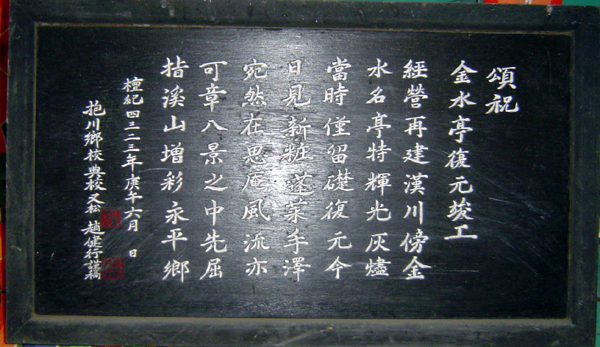 頌祝
金水亭復元竣工
經營再建漢川傍金
水名亭特輝光灰燼
當時僅留礎復元今
日見新粧蓬萊手澤
宛然在思庵風流亦
可章八景之中先屈
指溪山增彩永平鄉
檀紀四三二三年庚午六月 日
抱川鄉校典校又松 趙健行謹稿